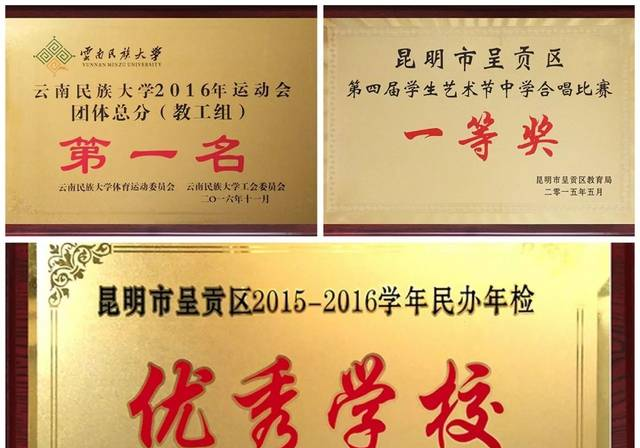 雲南民族大学
YUNNAN MINZU UNIVERSITY
云南民族大学2016年运动会
团体总分（教工组）
第一名
云南民族大学体育运动委员会 云南民族大学工会委员会
二〇一六年十一月
昆明市呈贡区
第四届学生艺术节中学合唱比赛
一等奖
昆明市呈贡区教育局
二零一五年五月
昆明市呈贡区2015-2016学年民办年检
优秀学校